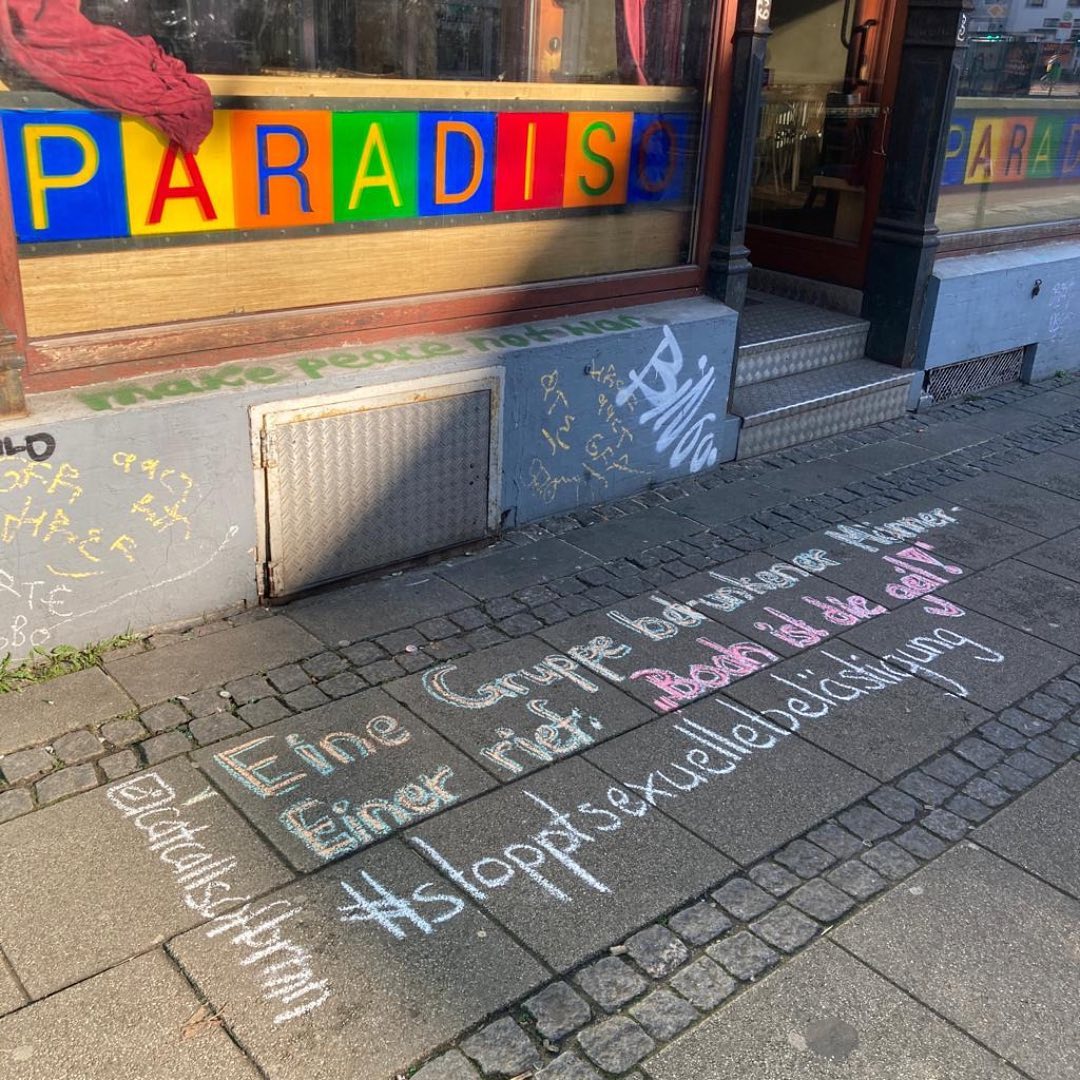 PARADISO
PARAD
make peace not war
Eine Gruppe betrunkener Männer.
Einer rief: „Boah ist die geil!"
#stopptsexuellebelästigung
@catcallsofbrmn